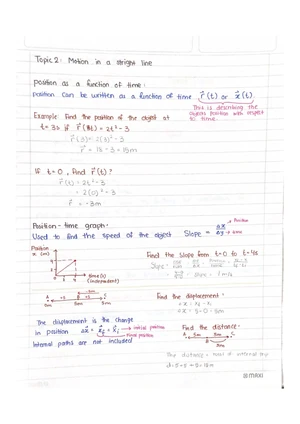 Topic 2: Motion in a stright line
position as a function of time:
position can be written as a function of time r(t) or x(t)
This is describing the
objects position with respect
to time.
Example: Find the position of the object at
t = 3s if r(t) = 2t² - 3
r(3) = 2(3)² - 3
r = 18 - 3 = 15m
If t = 0, Find r(t)?
r(t) = 2t² - 3
= 2(0)² - 3
r = -3m
Position - time graph:
Used to find the speed of the object
Slope = Δx → Position
Δy → time
Position
x (m)
time (s)
(independent)
Find the slope from t=0 to t=4s
Slope =
= 1 m/s
Find the displacement:
Δx = x₂ - x₁
The displacement is the change
in position Δx = xf - xi → initial position
Final position
Internal paths are not included
Find the distance:
A 5m B 5m C
The distance =
MAXI